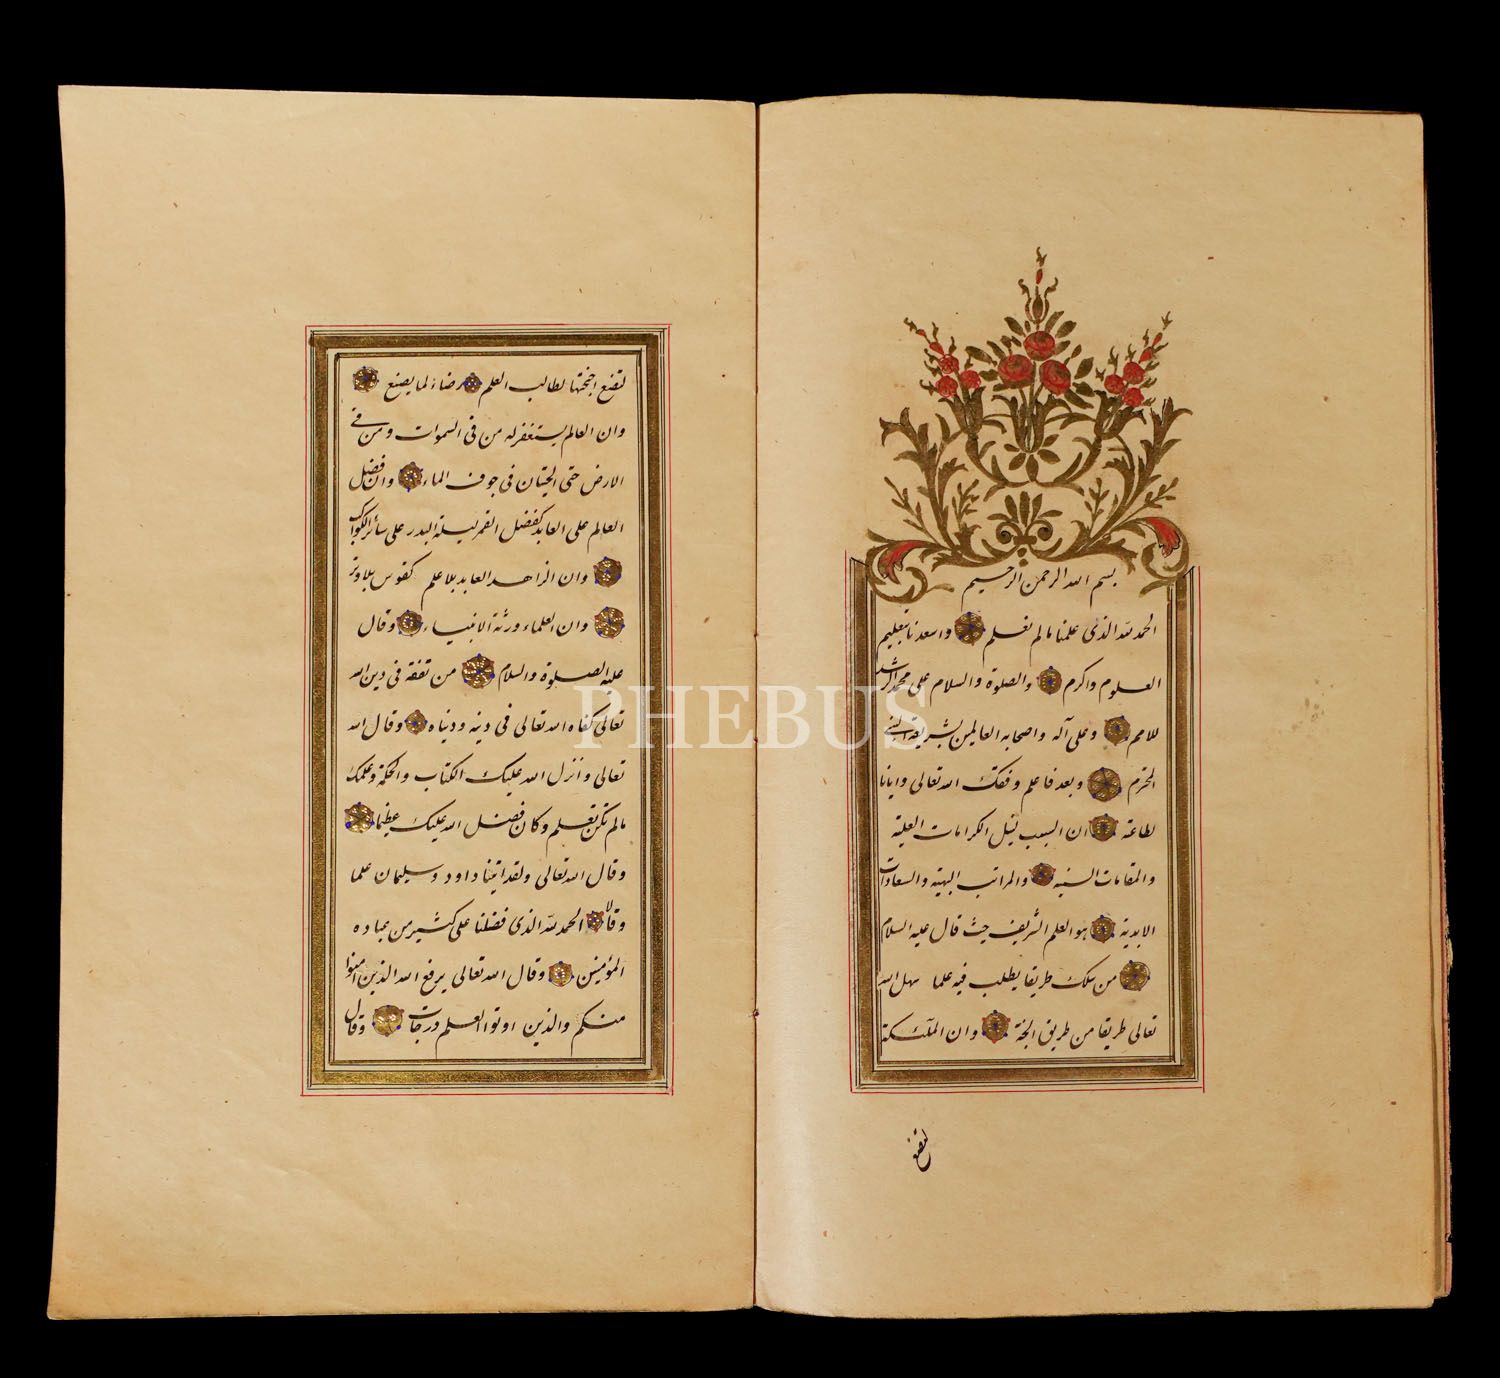 بسم الله الرحمن الرحيم
الحمد لله الذى علمنا ما لم نعلم واسعدنا بتعليم
العلوم واكرم والصلوة والسلام على محمد ارشد
للامم وعلى آله واصحابه العالمين بشريعة النبى
المحترم وبعد فاعلم وفقك الله تعالى وايانا
لطاعته ان السبب لنيل الكرامات العلية
والمقامات السنيه والمراتب البهية والسعادات
الابدية هو العلم الشريف حيث قال عليه السلام
من سلك طريقا يطلب فيه علما سهل الله
تعالى طريقا من طريق الجنة وان الملئكة
لتضع
لتضع اجنحتها لطالب العلم رضاء لما يصنع
وان العالم يستغفر له من فى السموات ومن فى
الارض حتى الحيتان فى جوف الماء وان فضل
العالم على العابد كفضل القمر ليلة البدر على سائر الكواكب
وان الزاهد العابد بلا علم كقوس بلا وتر
وان العلماء ورثة الانبياء وقال
عليه الصلوة والسلام من تفقه فى دين الله
تعالى كفاه الله تعالى فى دينه ودنياه وقال الله
تعالى وانزل الله عليك الكتاب والحكمة وعلمك
مالم تكن تعلم وكان فضل الله عليك عظيما
وقال الله تعالى ولقد اتينا داود وسليمان علما
وقالا الحمد لله الذى فضلنا على كثير من عباده
المؤمنين وقال الله تعالى يرفع الله الذين امنوا
منكم والذين اوتوا العلم درجات وقال
PHEBUS